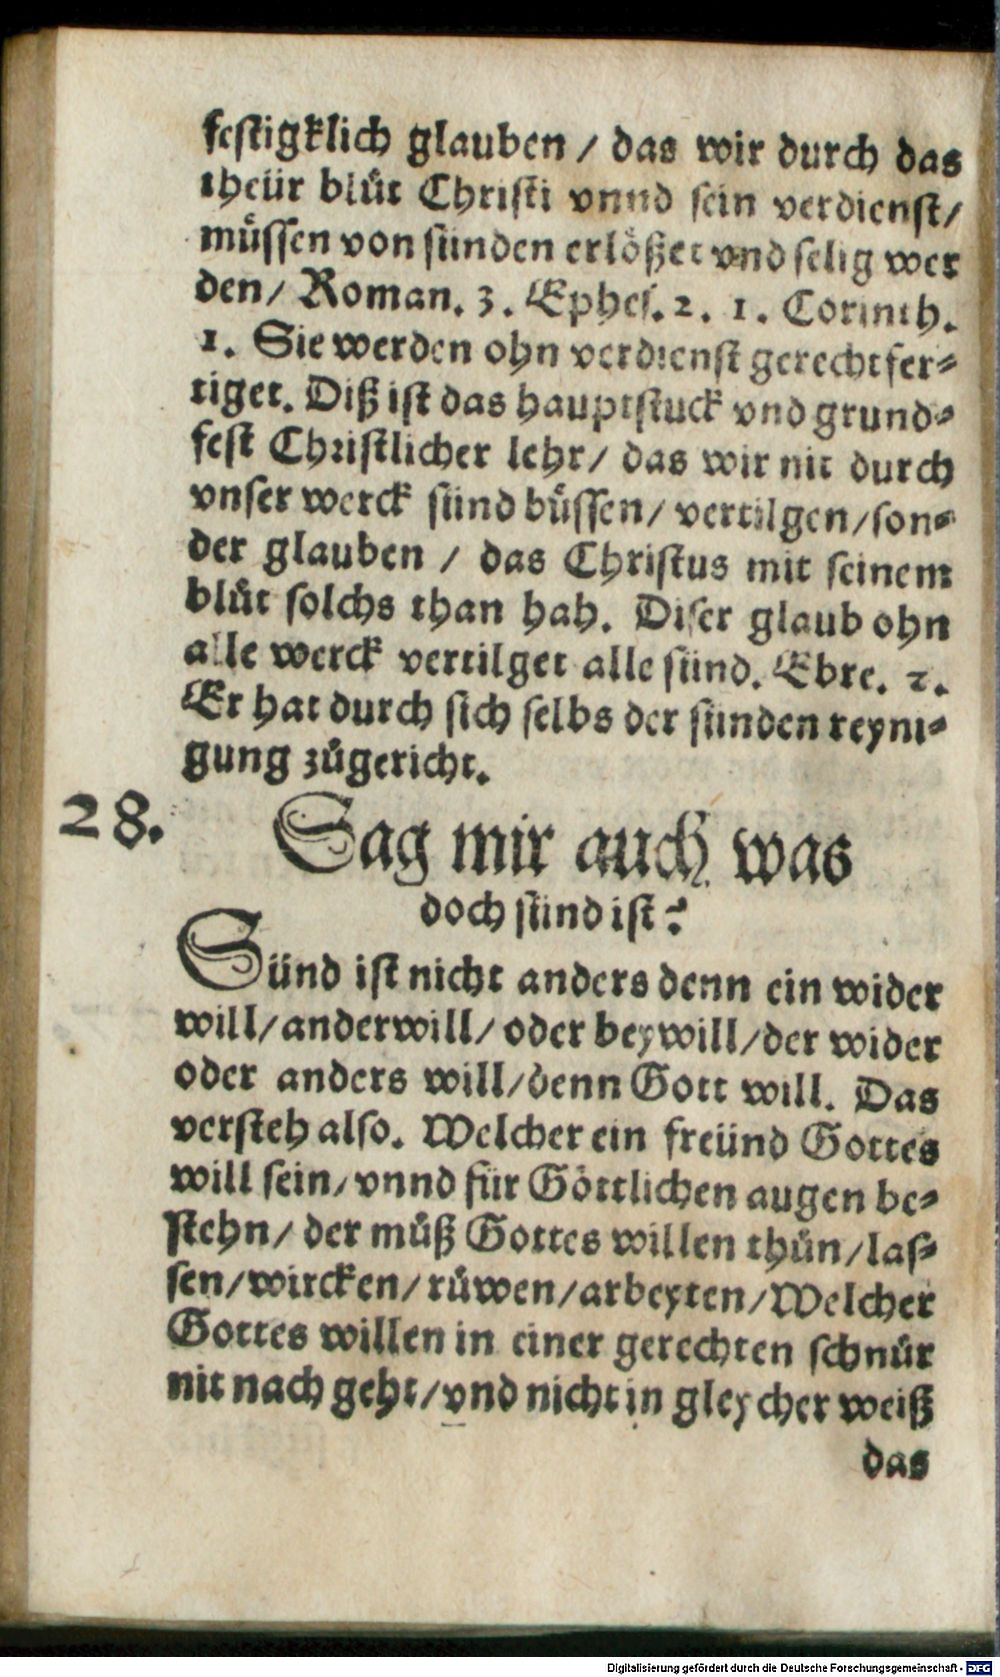 festigklich glauben / das wir durch das
theür blůt Christi vnnd sein verdienst/
müssen von sünden erlößet vnd selig wer
den/ Roman. 3. Ephes. 2. 1. Corinth.
1. Sie werden ohn verdienst gerechtfer⸗
tiget. Diß ist das hauptstuck vnd grund⸗
fest Christlicher lehr/ das wir nit durch
vnser werck sünd büssen/ vertilgen/son⸗
der glauben / das Christus mit seinem
blůt solchs than hah. Diser glaub ohn
alle werck vertilget alle sünd. Ebre. 2.
Er hat durch sich selbs der sünden reyni⸗
gung zůgericht.
28.
Sag mir auch was
doch sünd ist?
Sünd ist nicht anders denn ein wider
will/anderwill/ oder beywill/der wider
oder anders will/denn Gott will. Das
versteh also. Welcher ein freünd Gottes
will sein/ vnnd für Göttlichen augen be⸗
stehn/ der můß Gottes willen thůn/las⸗
sen/wircken/růwen/arbeyten/Welcher
Gottes willen in einer gerechten schnůr
nit nach geht/vnd nicht in gleycher weiß
das
Digitalisierung gefördert durch die Deutsche Forschungsgemeinschaft - DFG